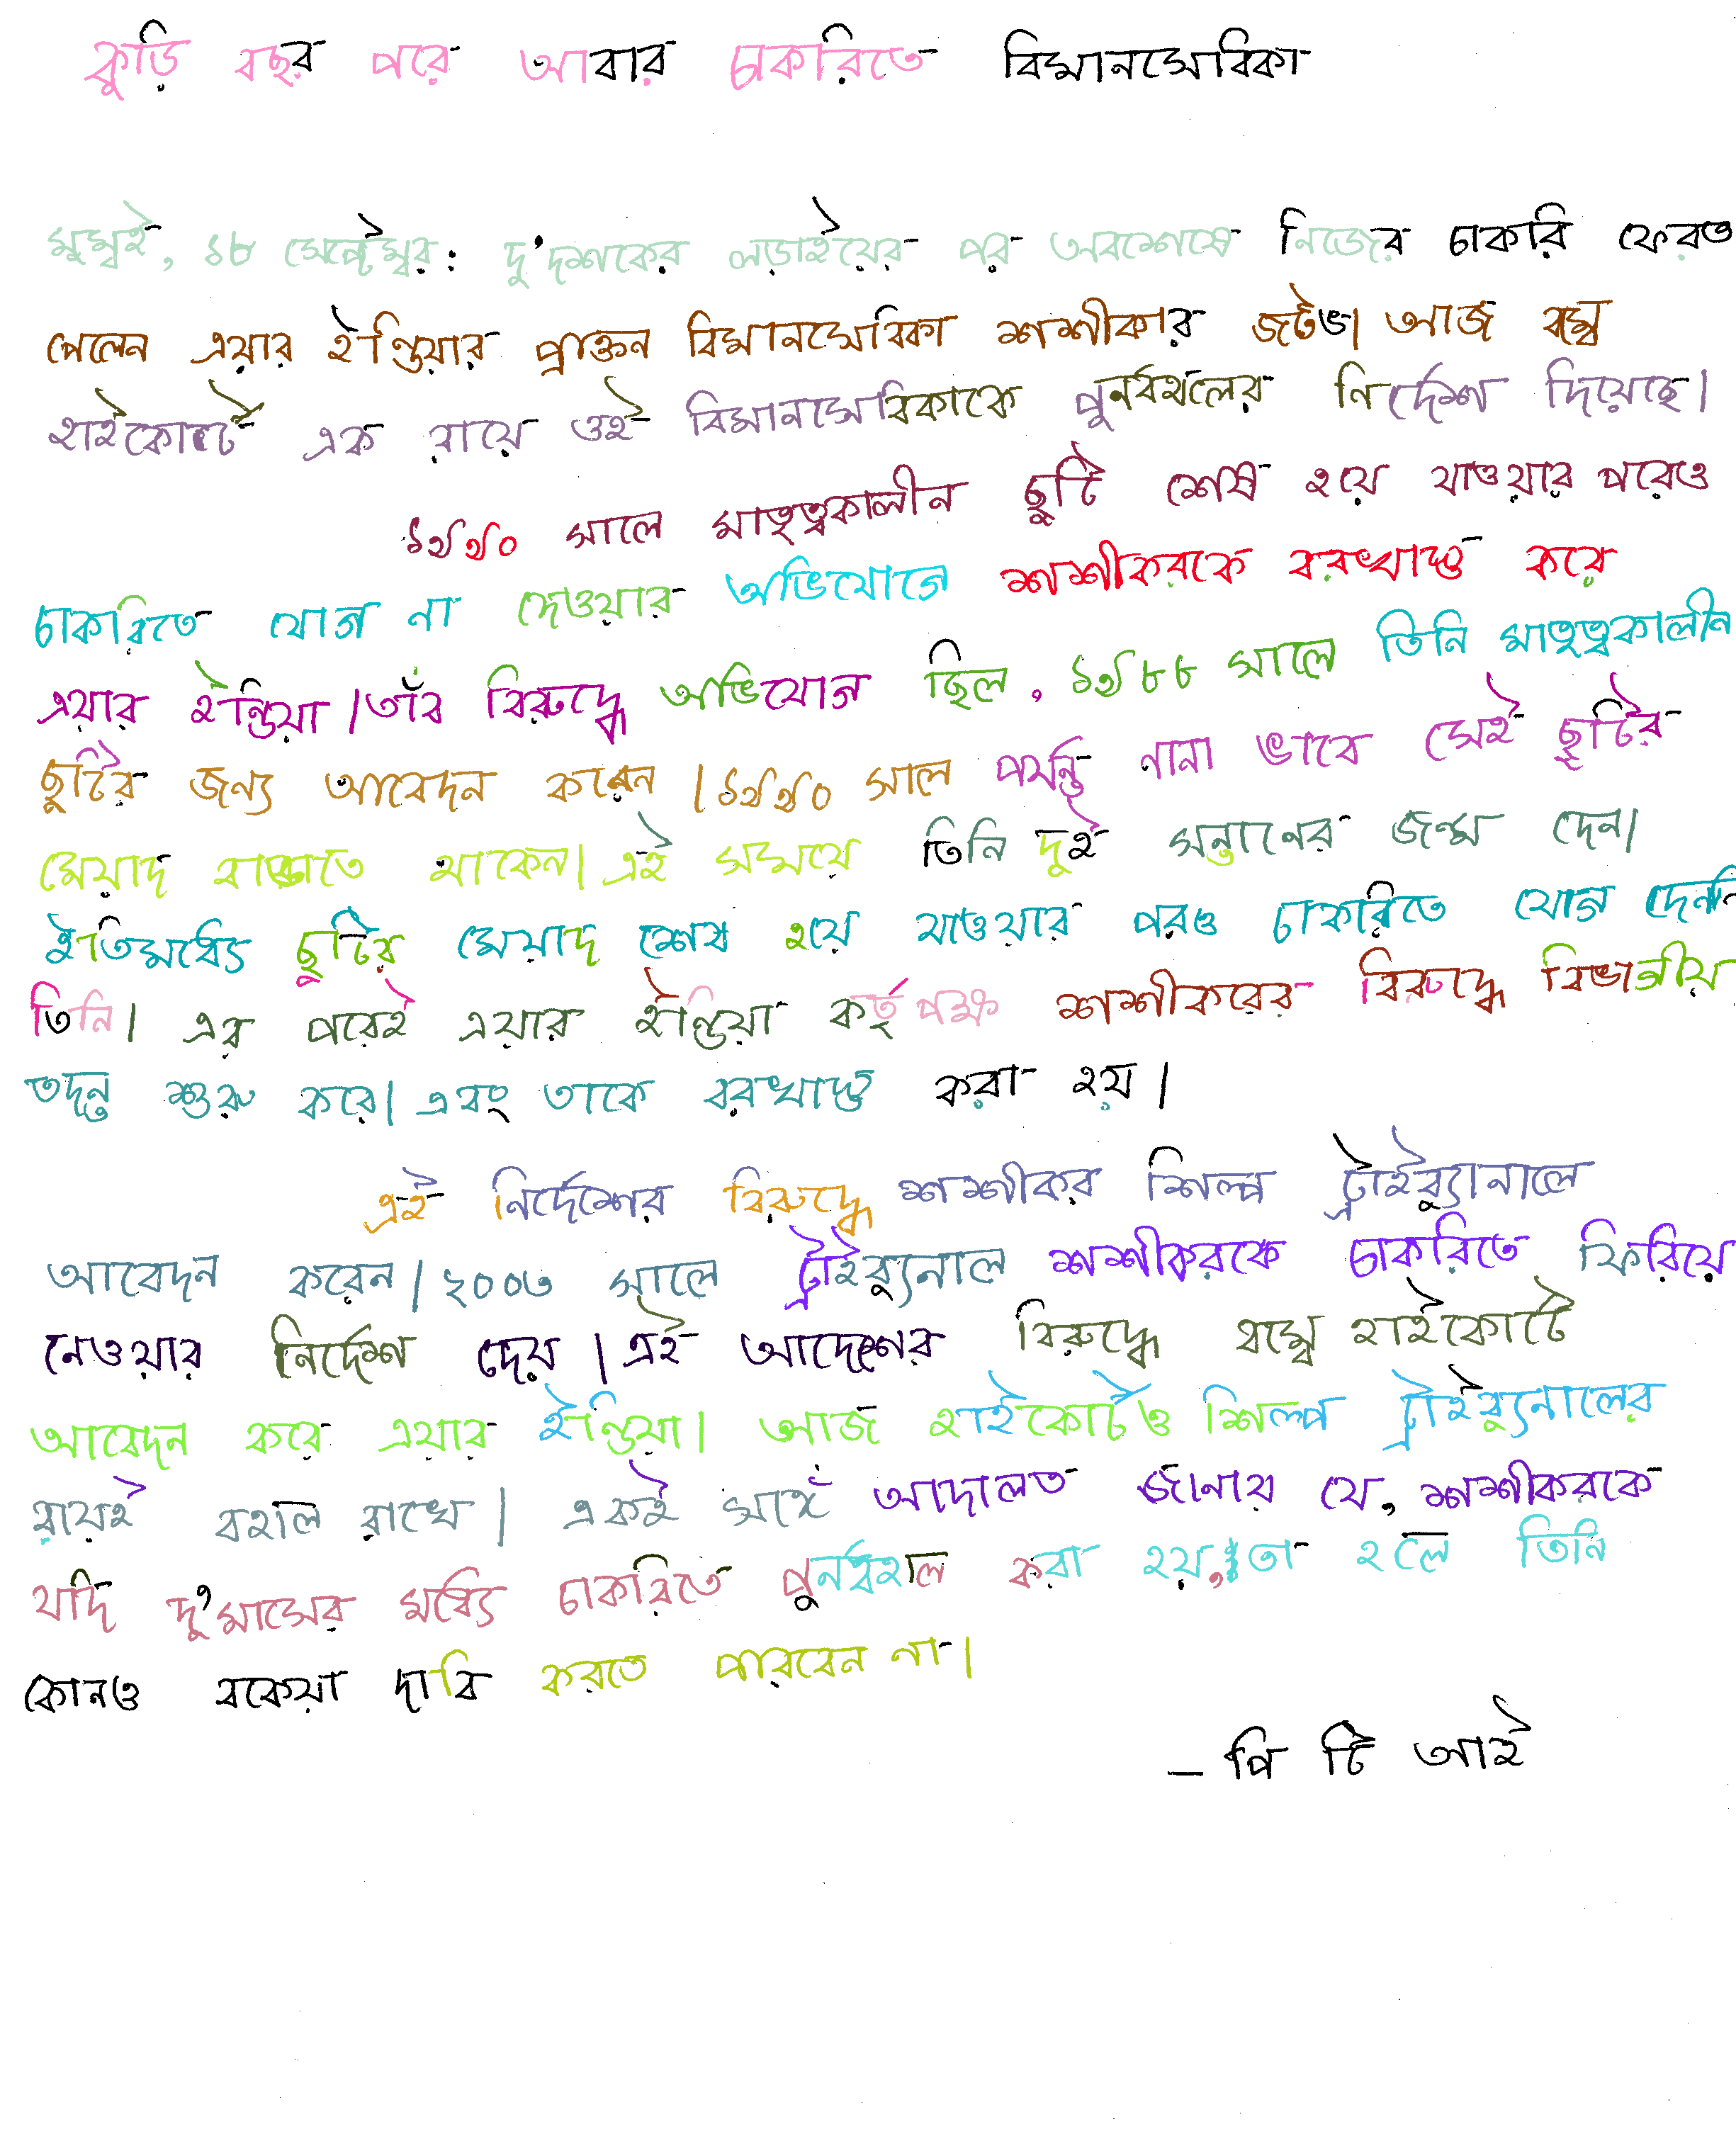 কুড়ি বছর পরে আবার চাকরিতে বিমানসেবিকা
মুম্বই, ১৮ সেপ্টেম্বর: দু'দশকের লড়াইয়ের পর অবশেষে নিজের চাকরি ফেরত
পেলেন এয়ার ইন্ডিয়ার প্রাক্তন বিমানসেবিকা শশীকার জটভ। আজ বম্বে
হাইকোর্ট এক রায়ে ওই বিমানসেবিকাকে পুনর্বহালের নির্দেশ দিয়েছে।
১৯৯০ সালে মাতৃত্বকালীন ছুটি শেষ হয়ে যাওয়ার পরেও
চাকরিতে যোগ না দেওয়ার অভিযোগে শশীকরকে বরখাস্ত করে
এয়ার ইন্ডিয়া। তাঁর বিরুদ্ধে অভিযোগ ছিল, ১৯৮৮ সালে তিনি মাতৃত্বকালীন
ছুটির জন্য আবেদন করেন। ১৯৯০ সাল পর্যন্ত নানা ভাবে সেই ছুটির
মেয়াদ বাড়াতে থাকেন। এই সময়ে তিনি দুই সন্তানের জন্ম দেন।
ইতিমধ্যে ছুটির মেয়াদ শেষ হয়ে যাওয়ার পরও চাকরিতে যোগ দেননি
তিনি। এর পরেই এয়ার ইন্ডিয়া কর্তৃপক্ষ শশীকরের বিরুদ্ধে বিভাগীয়
তদন্ত শুরু করে। এবং তাকে বরখাস্ত করা হয়।
এই নির্দেশের বিরুদ্ধে শশীকর শিল্প ট্রাইব্যুনালে
আবেদন করেন। ২০০৩ সালে ট্রাইব্যুনাল শশীকরকে চাকরিতে ফিরিয়ে
নেওয়ার নির্দেশ দেয়। এই আদেশের বিরুদ্ধে বম্বে হাইকোর্টে
আবেদন করে এয়ার ইন্ডিয়া। আজ হাইকোর্টও শিল্প ট্রাইব্যুনালের
রায়ই বহাল রাখে। একই সঙ্গে আদালত জানায় যে, শশীকরকে
যদি দু'মাসের মধ্যে চাকরিতে পুনর্বহাল করা হয়, তা হলে তিনি
কোনও বকেয়া দাবি করতে পারবেন না।
– পি টি আই